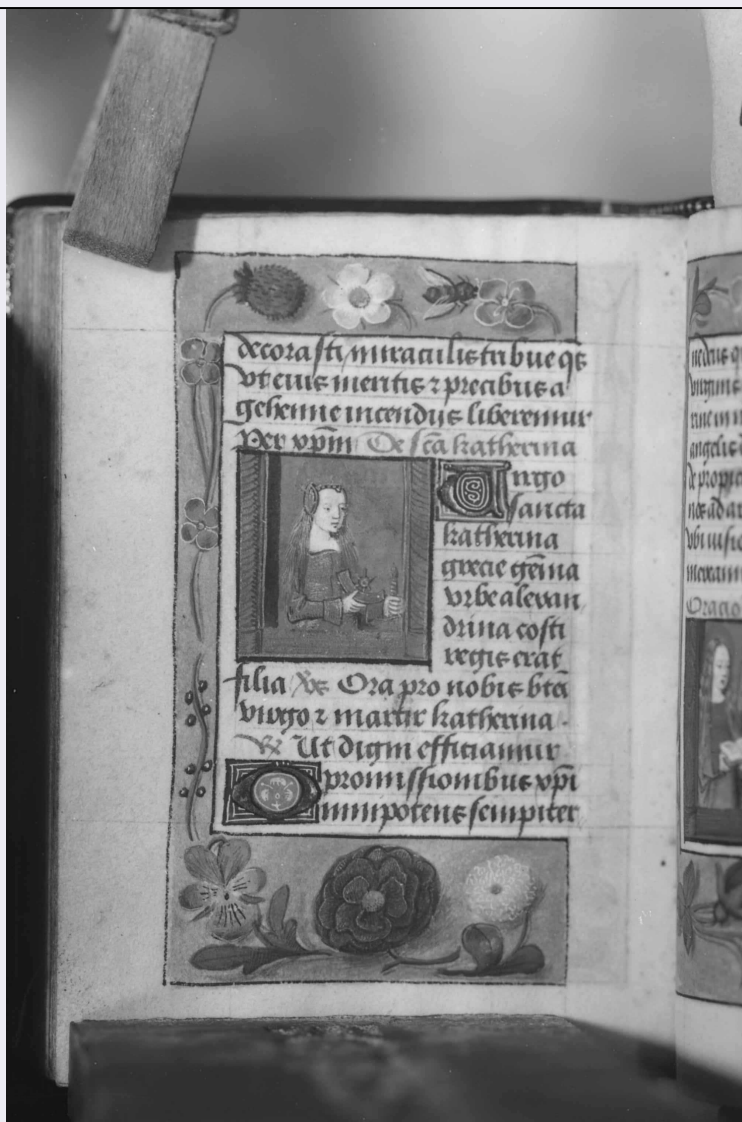 decorasti miraculis tribue qs
ut eius meritis ⁊ precibus a
gehenne incendiis liberemur
Per xpm De sca katherina
Virgo
sancta
katherina
grecie gema
urbe alexan
drina costi
regis erat
filia Vs Ora pro nobis bta
virgo ⁊ martir katherina
R Ut digni efficiamur
promissionibus xpi
Omnipotens sempiter
angelis
Oracio